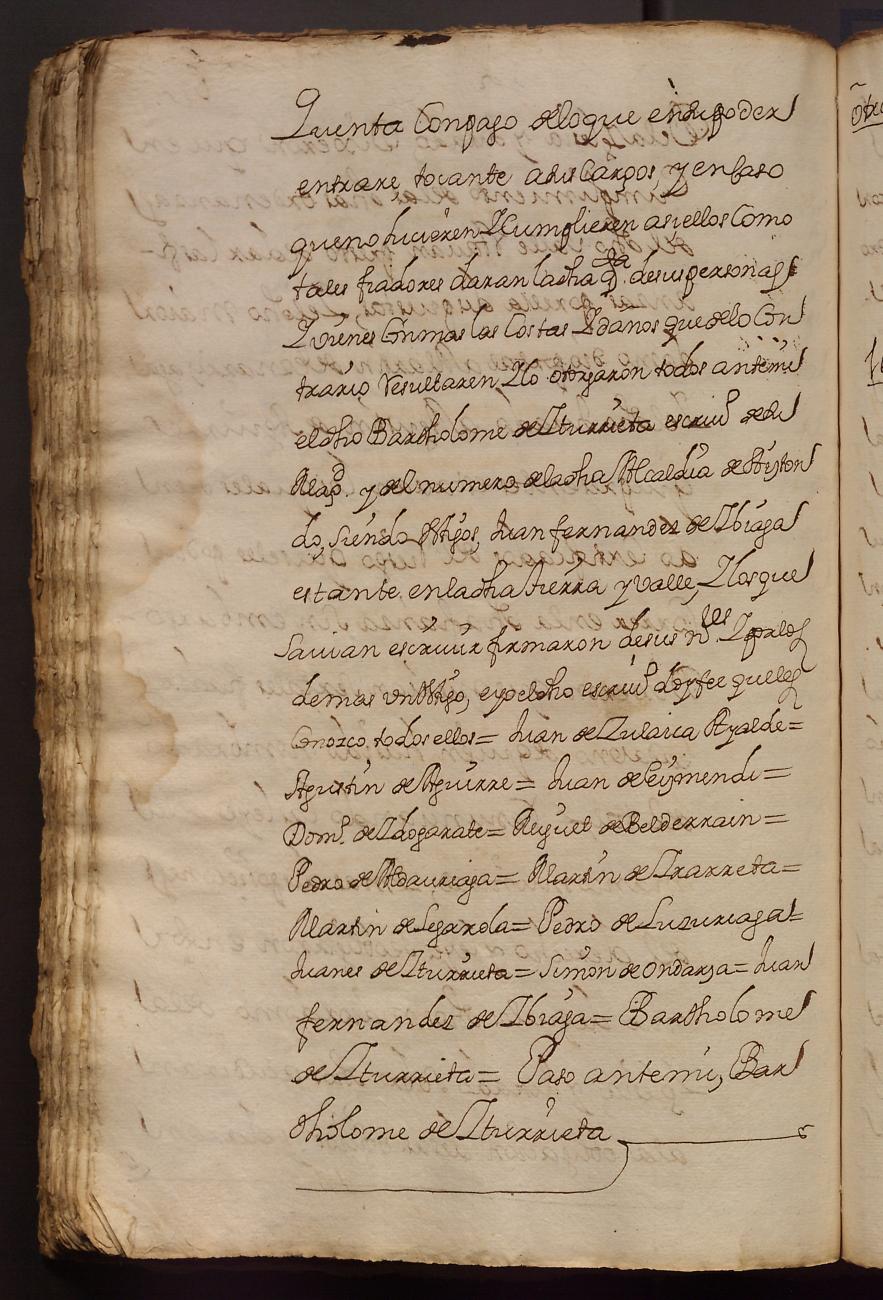 Quenta Conpago deloque ensupoder
entrare tocante adis Cargos, y encaso
queno hicieren Y Cumplieren asiellos Como
tales fiadores daran ladha qta. desuspersonas
Y vienes Conmas las Costas Y daños quedello Con
trario Resultaren Y lo otorgaron todos antemi
eldho Bartholome de Yturrieta escriuº desu
Magd. y del numero deladha Alcaldia de Aizton
do, siendo ttigos, Juan fernandez de Ybiaga
estante enladha tierra y valle, Y losque
sauian escriuir firmaron desus nres. Y porlos
demas vn ttigo, eyo eldho escriuº doy fee queles
Conozco, todos ellos = Juan de Zulaica Ayalde =
Agustin de Aguirre = Juan de Leyzmendi =
Domº. de Ydogarate = Miguel de Belderrain =
Pedro de Aldauriaga = Martin de Yrarreta =
Martin de Legarola = Pedro de Luzuriaga =
Juanes de Yturrieta = Simon de Ondarza = Juan
fernandez de Ybiaga = Bartholome
de Yturrieta = Paso antemi, Bar
tholome de Yturrieta
otro